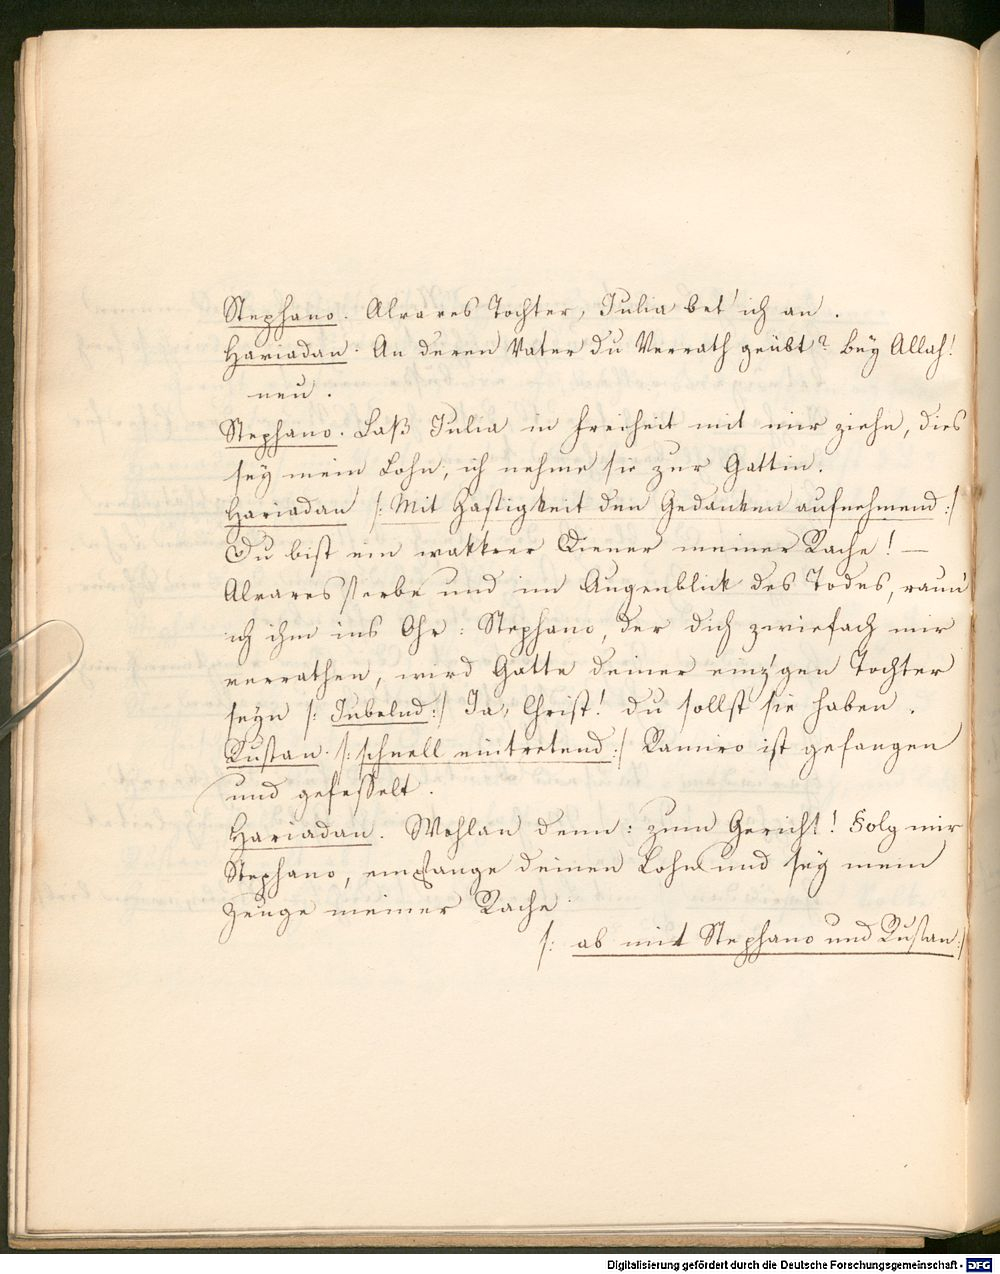 Stephano. Alvares Tochter, Julia bet' ich an.
Hariadan. An deren Vater du Verrath geübt? Bey Allah!
neu.
Stephano. Laß Julia in Freiheit mit mir ziehn, dies
sey mein Lohn, ich nehme sie zur Gattin.
Hariadan /: Mit Hastigkeit den Gedanken aufnehmend :/
Du bist ein wakkrer Diener meiner Rache! —
Alvares sterbe und im Augenblick des Todes, raun'
ich ihm ins Ohr: Stephano, der dich zwiefach mir
verrathen, wird Gatte deiner einz'gen Tochter
seyn /: Jubelnd :/ Ja, Christ! du sollst sie haben.
Rustan. /: schnell eintretend :/ Ramiro ist gefangen
und gefesselt.
Hariadan. Wohlan denn: zum Gericht! Folg mir
Stephano, empfange deinen Lohn und sey mein
Zeuge meiner Rache.
/: ab mit Stephano und Rustan :/
Digitalisierung gefördert durch die Deutsche Forschungsgemeinschaft - DFG